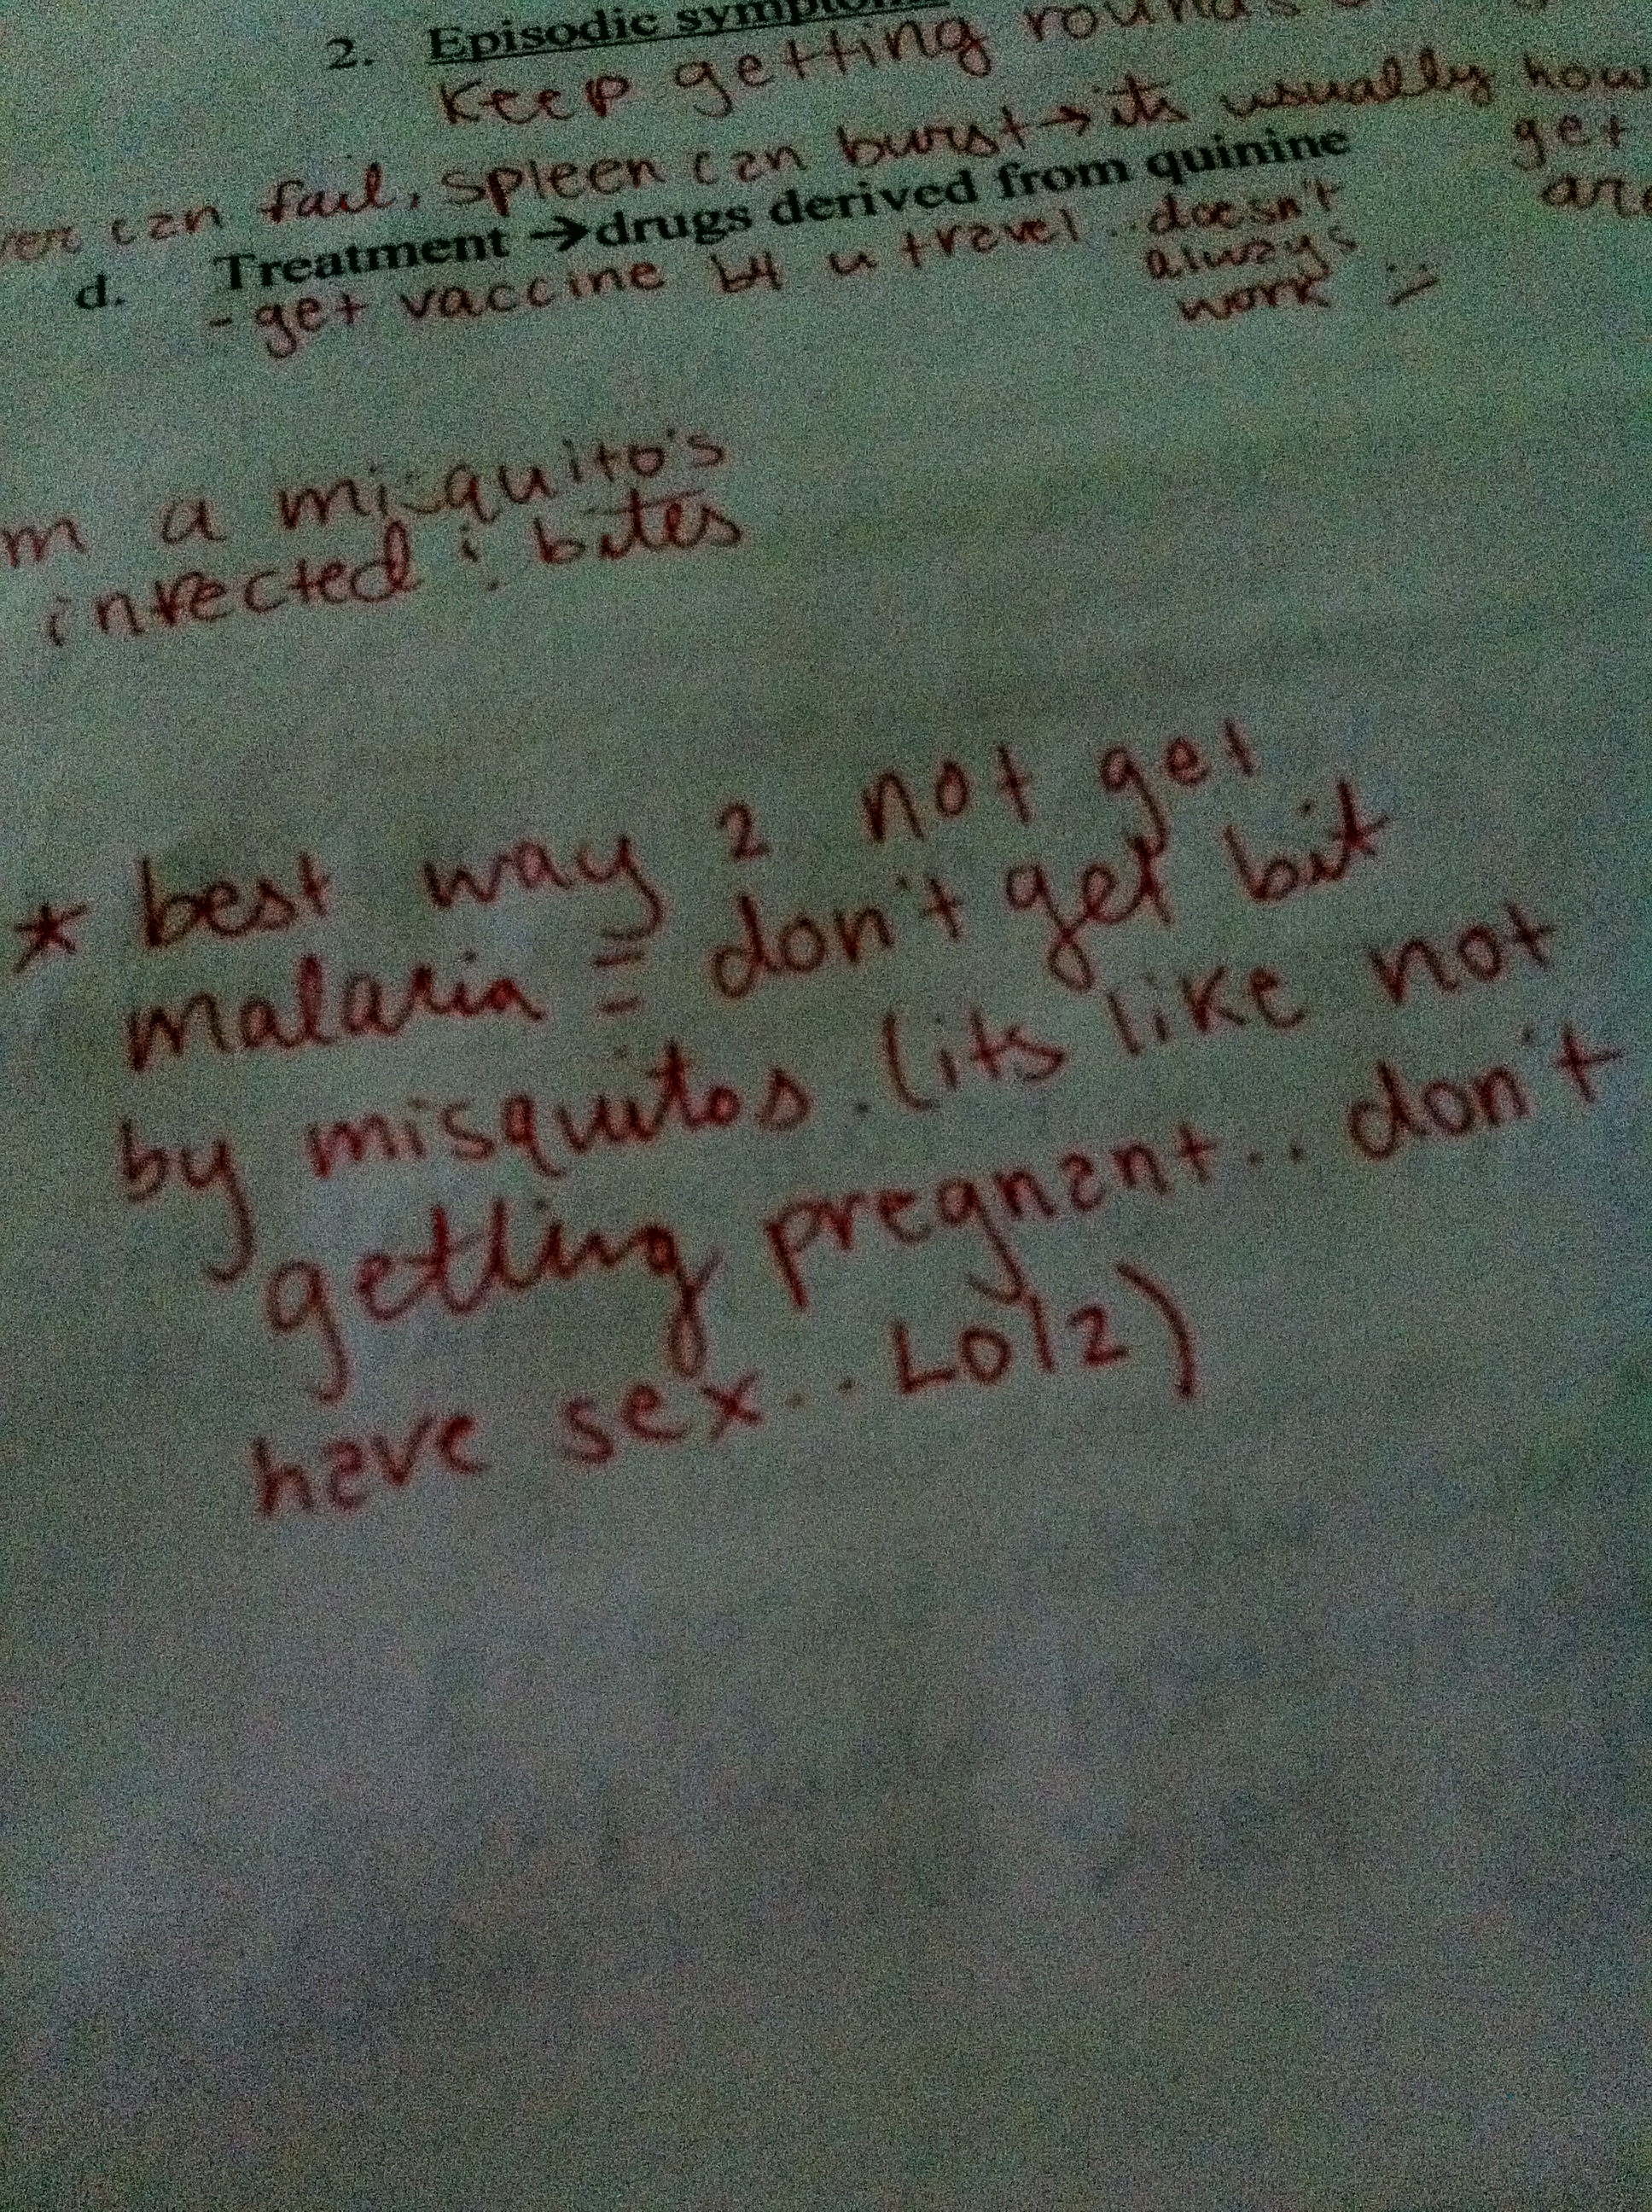 2. Episodic
Keep getting rounds
can fail, spleen can burst → its usually how
get
d. Treatment → drugs derived from quinine
- get vaccine b4 u travel.. doesn't
always
work :/
a misquito's
infected : bites
* best way 2 not get
malaria = don't get bit
by misquitos. (its like not
getting pregnant.. don't
have sex... Lolz)